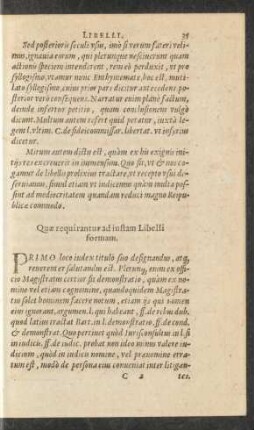 LIBELLI. 35
Sed posterioris seculi vsu, imò si verum fateri velimus,
ignauia eorum, qui plerunque nesciuerunt quam
actionis speciem intenderent, res eò perduxit, vt pro
syllogismo, vtamur nunc Enthymemate, hoc est, mutilato
syllogismo, cuius prim pars dicitur antecedens,
posterior verò consequens. Narratur enim planè factum,
deinde infertur petitio, quam conclusionem vulgò
dicunt. Multum autem refert quid peratur, iuxtà legem
1. vltim. C. de fideicommissar. libertat. vt inferius
dicetur.
Mirum autem dictu est, quàm ex his exiguis initijs
res excreuerit in immensum. Quo fit, vt & nos cogamur
de libellis prolixius tractare, vt recepto vsu deseruiamus,
simul etiam vt indicemus quàm multa possint
ad mediocritatem quandam reduci magno Reipublicæ
commodo.
Quæ requirantur ad iustam Libelli
formam.
PRIMO loco iudex titulò suo designandus, atq,
reuerenter salutandus est. Plerunq, enim ex officio
Magistratus certior fit demonstratio, quàm ex nomine
vel etiam cognomine, quandoquidem Magistratus
solet hominem facere notum, etiam ijs qui nomen
eius ignorant, argumen. l. qui habeant. ff. de rebus dub.
quod latius tractat Bart. in l. demonstratio. ff. de cond.
& demonstrat. Quo pertinet quòd Iurisconsultus in l. si
in iudicu. ff. de iudic. probat non ideo minus valere iudicium,
quòd in iudicis nomine, vel prænomine erratum
est, modò de persona eius conueniat inter litigan-
C 2 tes.